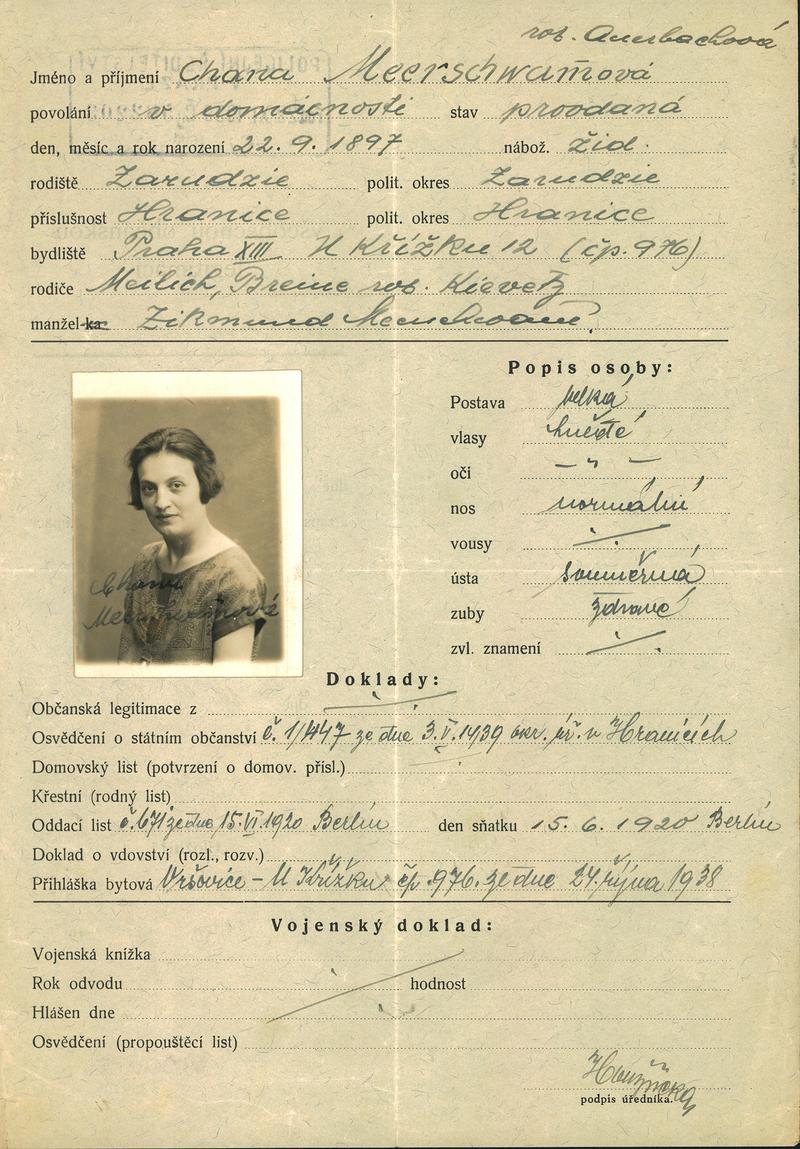 roz. Auerbachová
Jméno a příjmení Chana Meerschwamová
povolání v domácnosti stav provdaná
den, měsíc a rok narození 22. 9. 1897 nábož. žid.
rodiště Zarudzie polit. okres Zarudzie
příslušnost Hranice polit. okres Hranice
bydliště Praha XIII U Křížku 12 (čp. 976)
rodiče Meilich, Breine roz. Kievetz
manžel-ka Zikmund Meerschwam
Popis osoby:
Postava velká
vlasy hnědé
oči — " —
nos normální
vousy ·/·
ústa souměrná
zuby zdravé
zvl. znamení ·/·
Chana
Meerschwamová
Doklady:
Občanská legitimace z
Osvědčení o státním občanství č. 1/447 ze dne 3. V. 1939 okr. úř. v Hranicích
Domovský list (potvrzení o domov. přísl.)
Křestní (rodný list)
Oddací list č. 671 ze dne 15. VI. 1920 Berlín den sňatku 15. 6. 1920 Berlín
Doklad o vdovství (rozl., rozv.)
Přihláška bytová Vršovice – U Křížku čp. 976. ze dne 24. října 1938
Vojenský doklad:
Vojenská knížka
Rok odvodu hodnost
Hlášen dne
Osvědčení (propouštěcí list)
podpis úředníka.